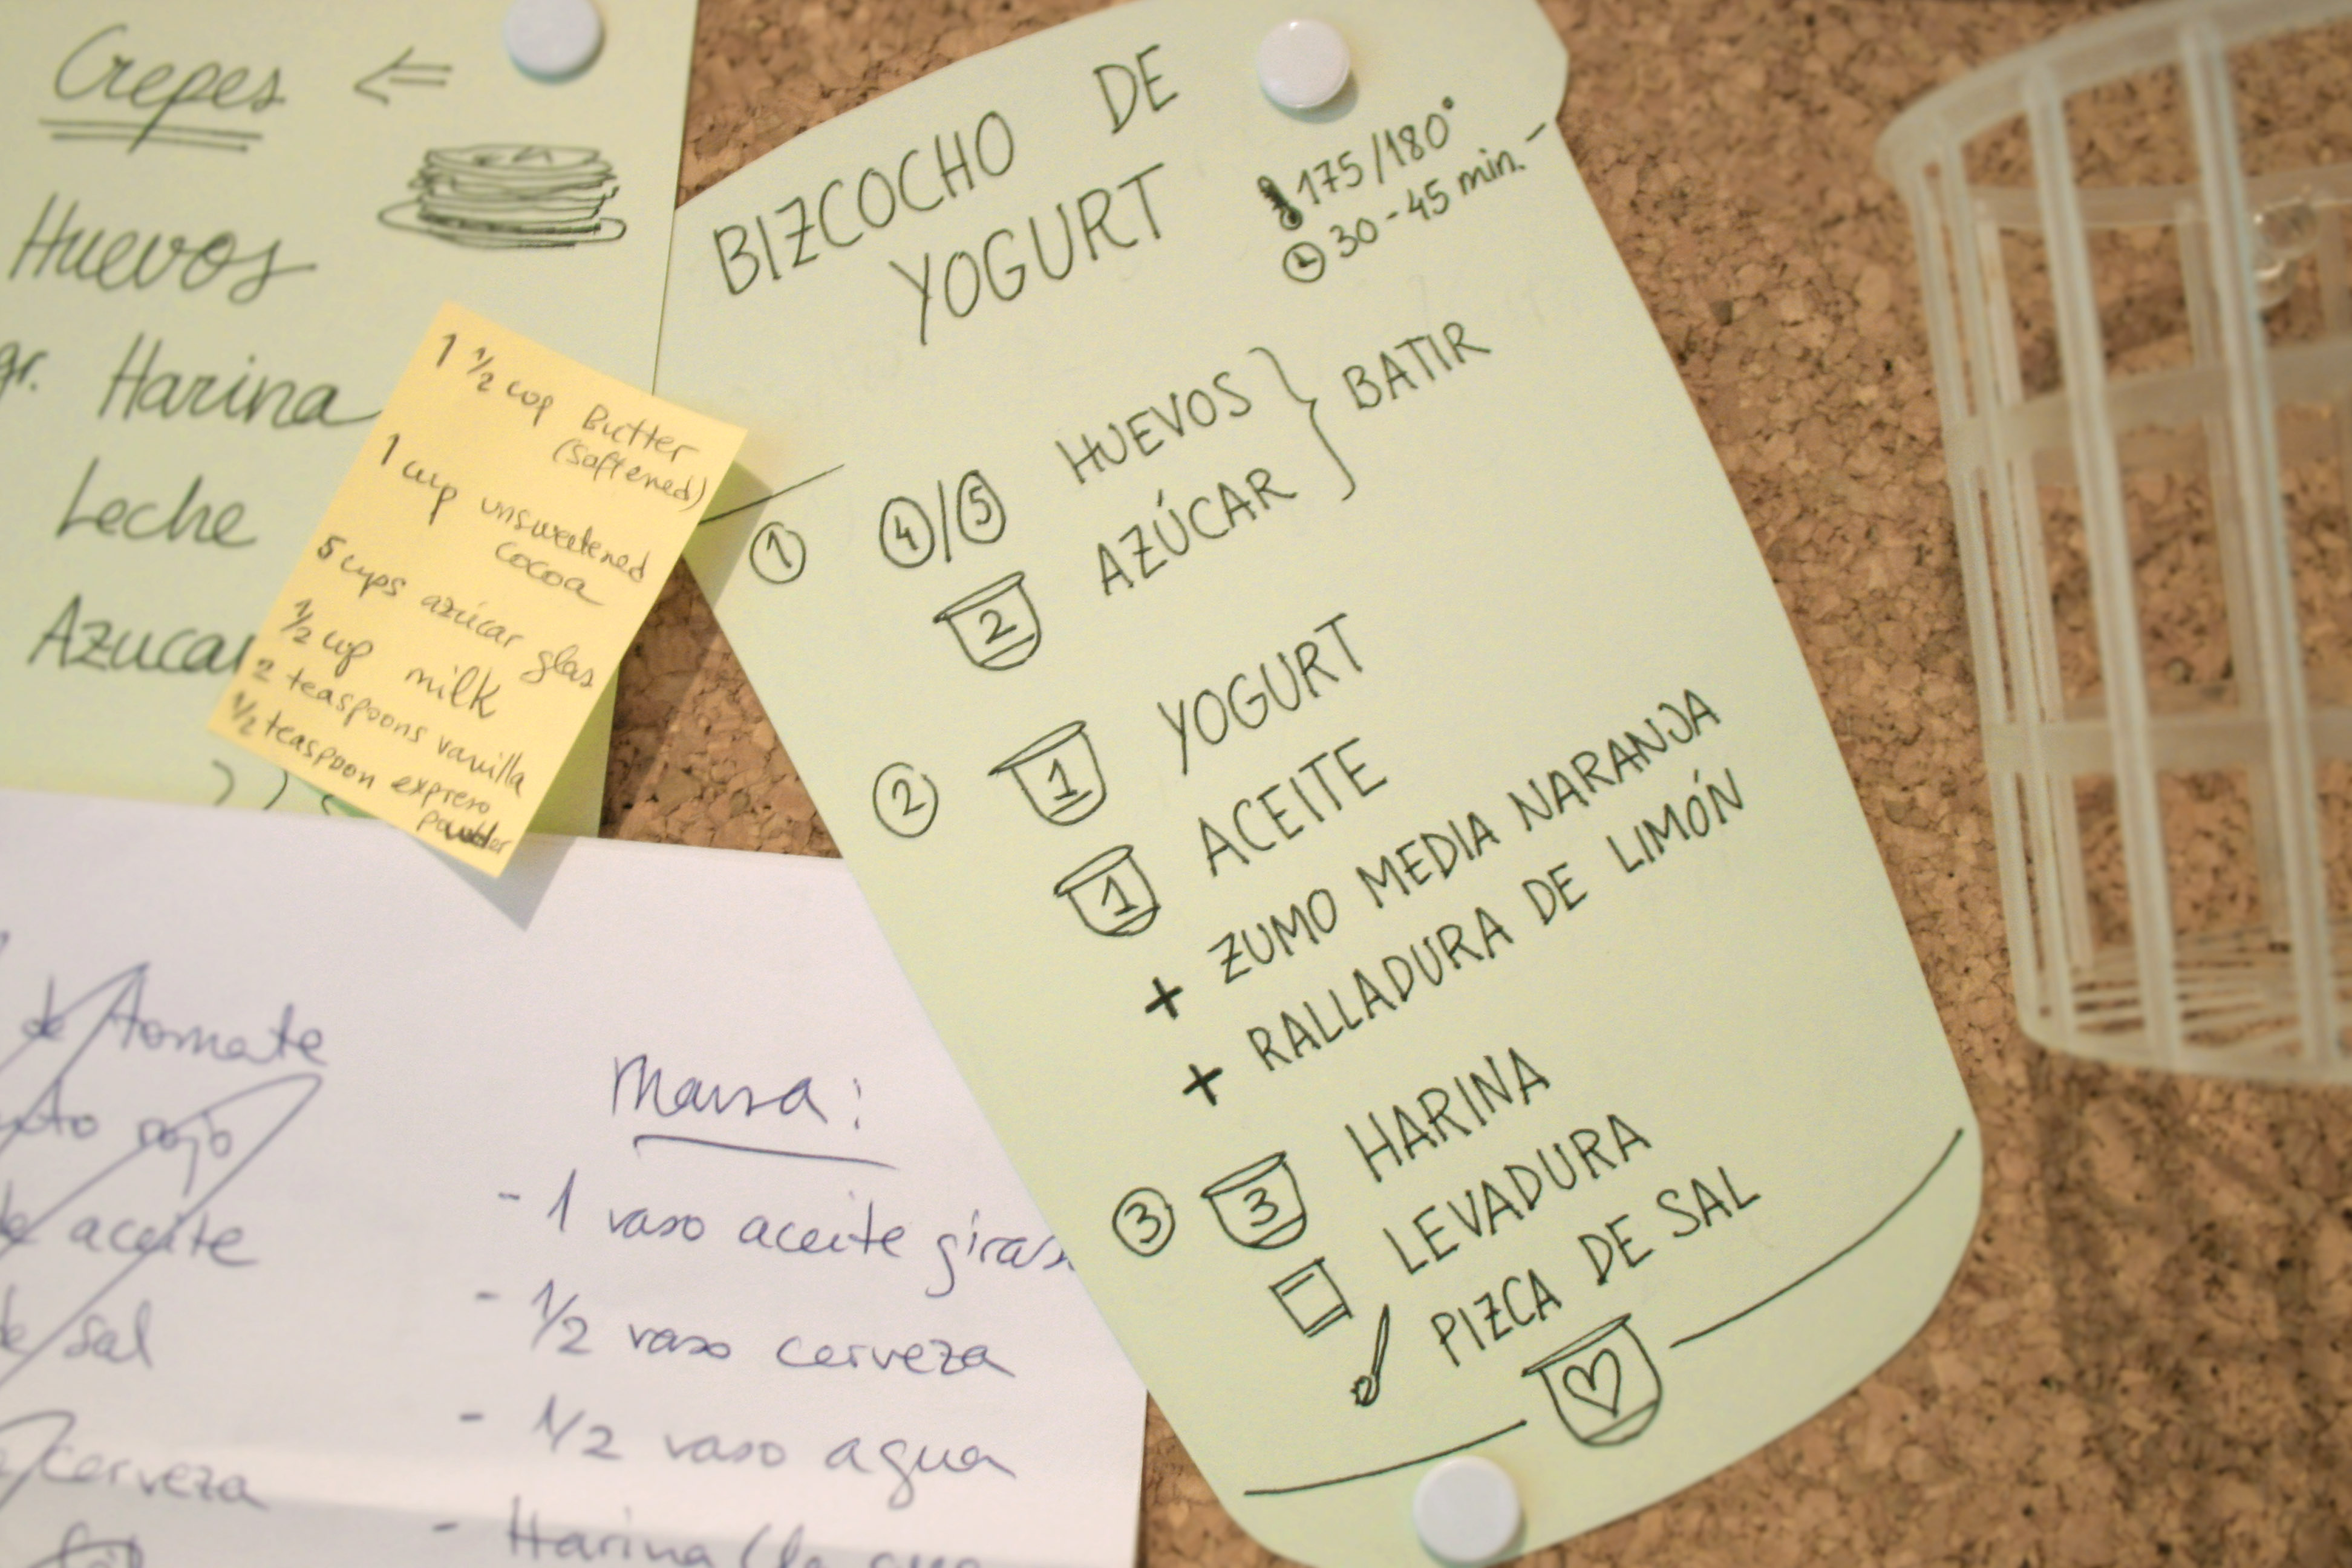 Crepes
Huevos
gr. Harina
Leche
Azucar
1 1/2 cup Butter
(softened)
1 cup unsweetened
cocoa
5 cups azúcar glas
1/2 cup milk
2 teaspoons vanilla
1/2 teaspoon expreso
powder
BIZCOCHO DE
YOGURT
175/180°
30-45 min.-
1 4/5 HUEVOS } BATIR
2 AZÚCAR
2 1 YOGURT
1 ACEITE
+ ZUMO MEDIA NARANJA
+ RALLADURA DE LIMÓN
3 3 HARINA
LEVADURA
PIZCA DE SAL
de tomate
rojo
de aceite
de sal
cerveza
Masa:
- 1 vaso aceite giras
- 1/2 vaso cerveza
- 1/2 vaso agua
- Harina (la que